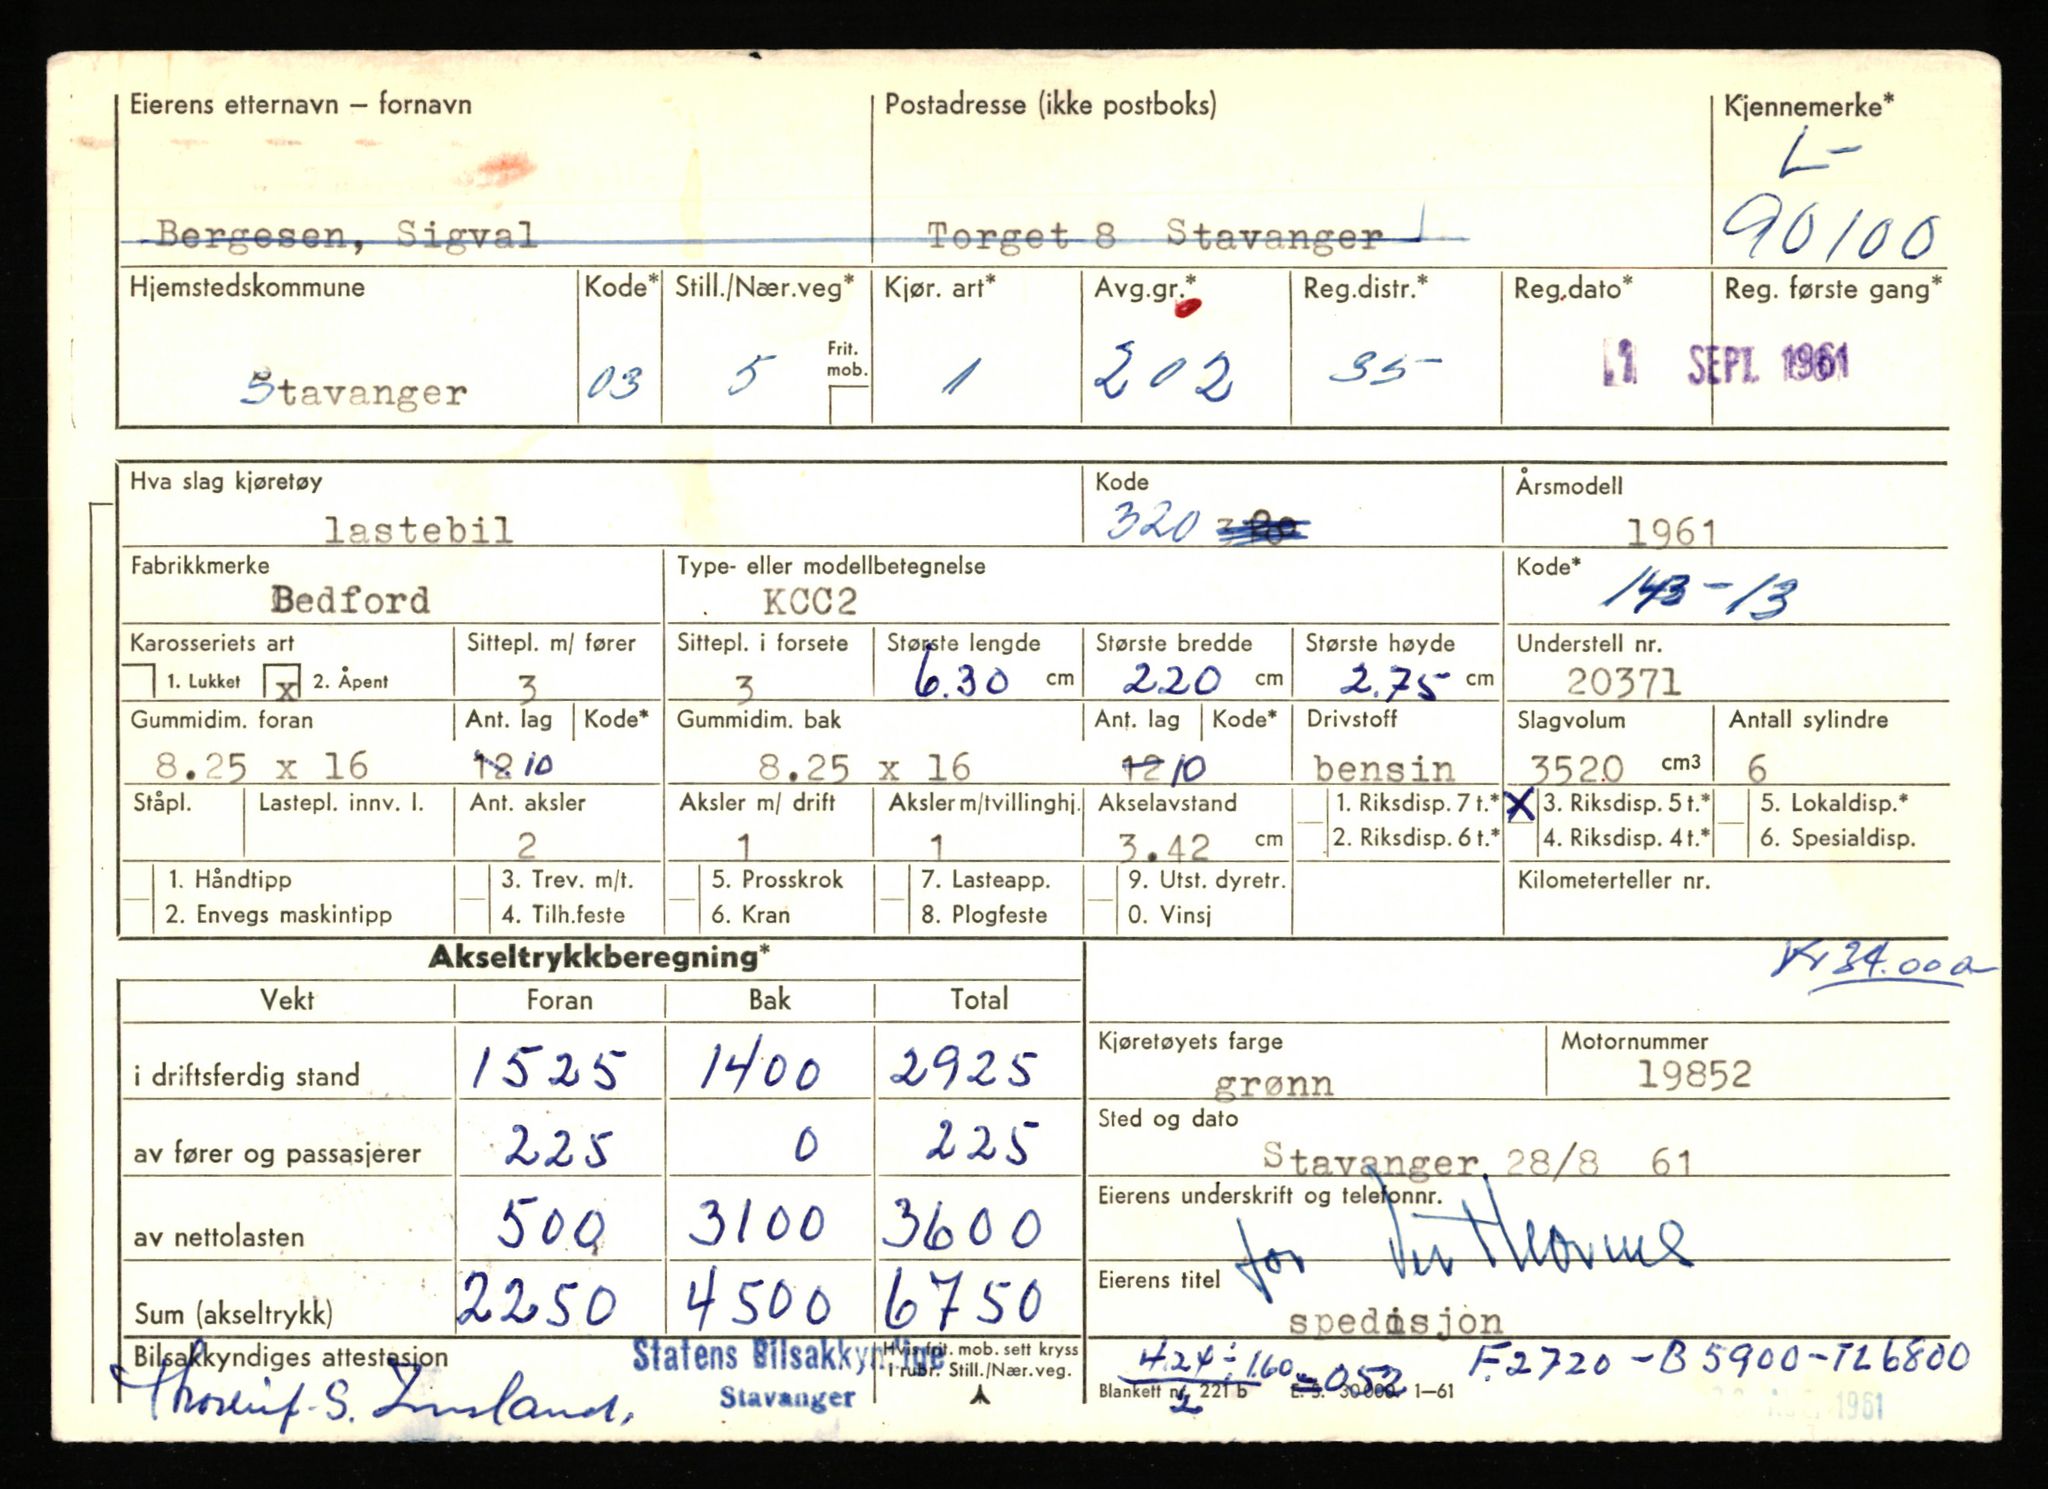 Eierens etternavn – fornavn Postadresse (ikke postboks) Kjennemerke*
L-
Bergesen, Sigval Torget 8 Stavanger 90100
Hjemstedskommune Kode* Still./Nær.veg* Kjør. art* Avg.gr.* Reg.distr.* Reg.dato* Reg. første gang*
Frit. mob.
Stavanger 03 5 1 202 35 1 SEPT. 1961
Hva slag kjøretøy Kode Årsmodell
lastebil 320 1961
Fabrikkmerke Type- eller modellbetegnelse Kode*
Bedford KCC2 143-13
Karosseriets art Sittepl. m/ fører Sittepl. i forsete Største lengde Største bredde Største høyde Understell nr.
1. Lukket x 2. Åpent 3 3 6.30 cm 220 cm 2.75 cm 20371
Gummidim. foran Ant. lag Kode* Gummidim. bak Ant. lag Kode* Drivstoff Slagvolum Antall sylindre
8.25 x 16 12 10 8.25 x 16 12 10 bensin 3520 cm3 6
Ståpl. Lastepl. innv. l. Ant. aksler Aksler m/ drift Aksler m/tvillinghj. Akselavstand 1. Riksdisp. 7 t.* X 3. Riksdisp. 5 t.* 5. Lokaldisp.*
2 1 1 3.42 cm 2. Riksdisp. 6 t.* 4. Riksdisp. 4 t.* 6. Spesialdisp.
1. Håndtipp 3. Trev. m/t. 5. Prosskrok 7. Lasteapp. 9. Utst. dyretr. Kilometerteller nr.
2. Envegs maskintipp 4. Tilh.feste 6. Kran 8. Plogfeste 0. Vinsj
Akseltrykkberegning* Kr 34.000
Vekt Foran Bak Total
Kjøretøyets farge Motornummer
i driftsferdig stand 1525 1400 2925 grønn 19852
Sted og dato
av fører og passasjerer 225 0 225 Stavanger 28/8 61
Eierens underskrift og telefonnr.
av nettolasten 500 3100 3600 for
Eierens titel
Sum (akseltrykk) 2250 4500 6750 spedisjon
Bilsakkyndiges attestasjon Statens Bilsakkyndige Hvis frit. mob. sett kryss 4.24 ÷ 160 = 052 F.2720 - B 5900 - TL 6800
S. Stavanger i rubr. Still./Nær.veg. 2 Blankett nr. 221 b E. S. 30 000 1–61 1961